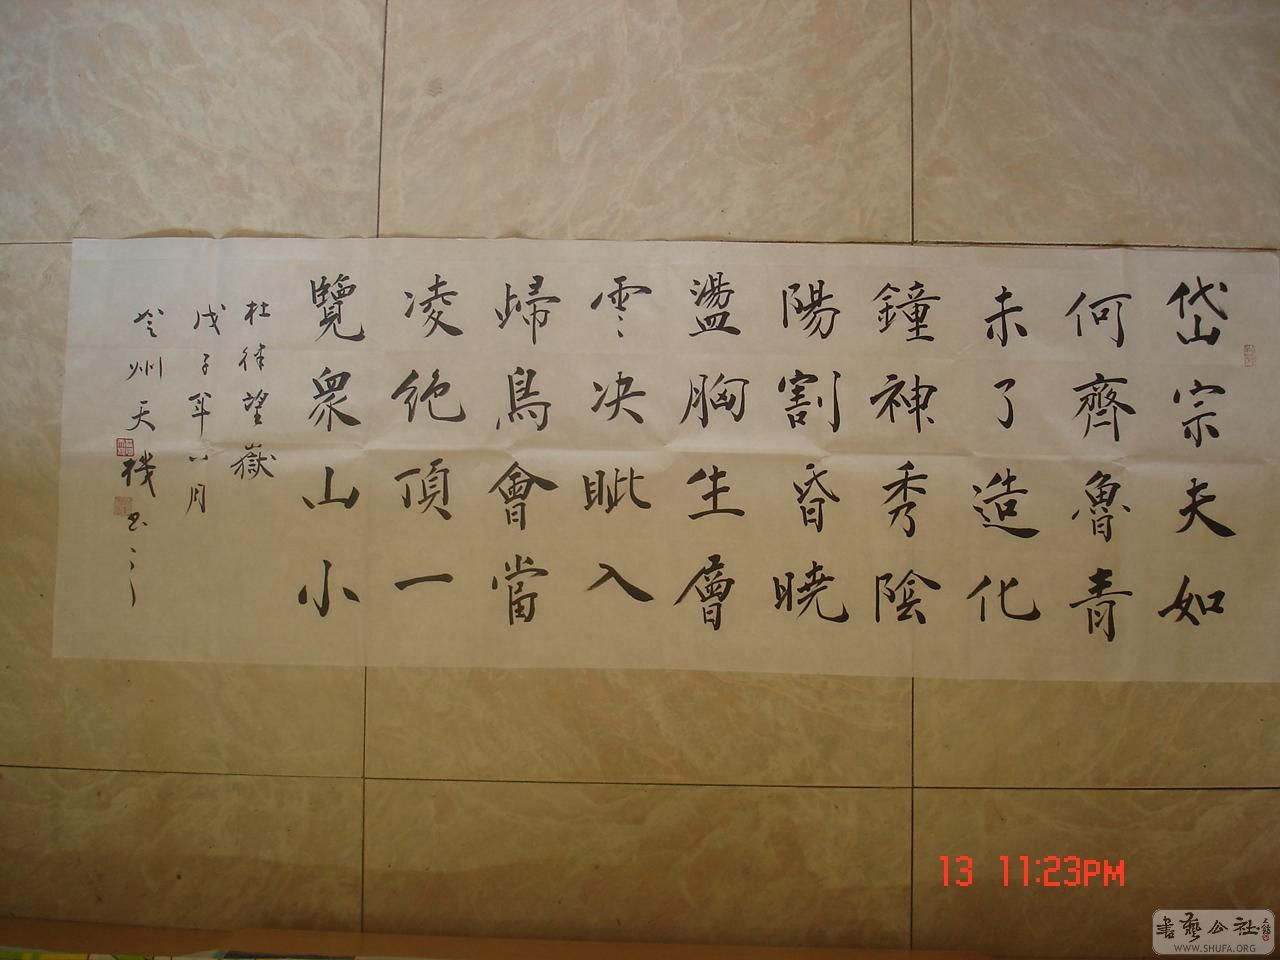 岱宗夫如
何齊魯青
未了造化
鐘神秀陰
陽割昏曉
盪胸生層
雲决眦入
歸鳥會當
凌絶頂一
覽眾山小
杜律望嶽
戊子年八月
州天機书之
13 11:23PM
書藝公社
WWW.SHUFA.ORG